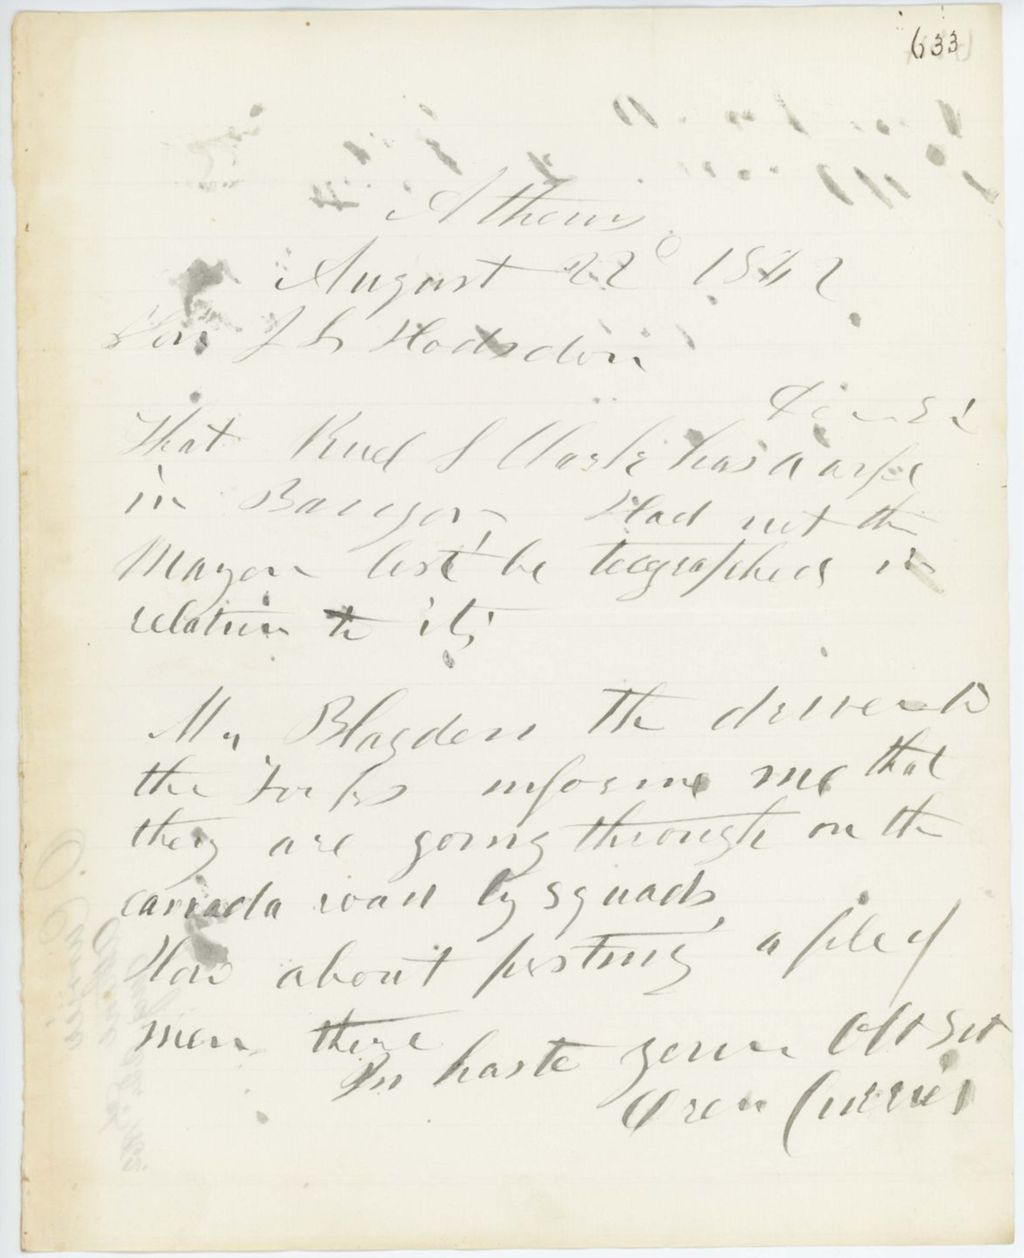 633
Athens
August 22d 1862
Hon J L Hodsdon
That Ruel S Clark has a
in Bangor Had not the
Mayor best be telegraphed in
relation to it;
Mr Blagden the driver to
the Forks informs me that
they are going through on the
canada road by squads
How about posting a file of
men there
In haste your Obt Svt
Oren Currier